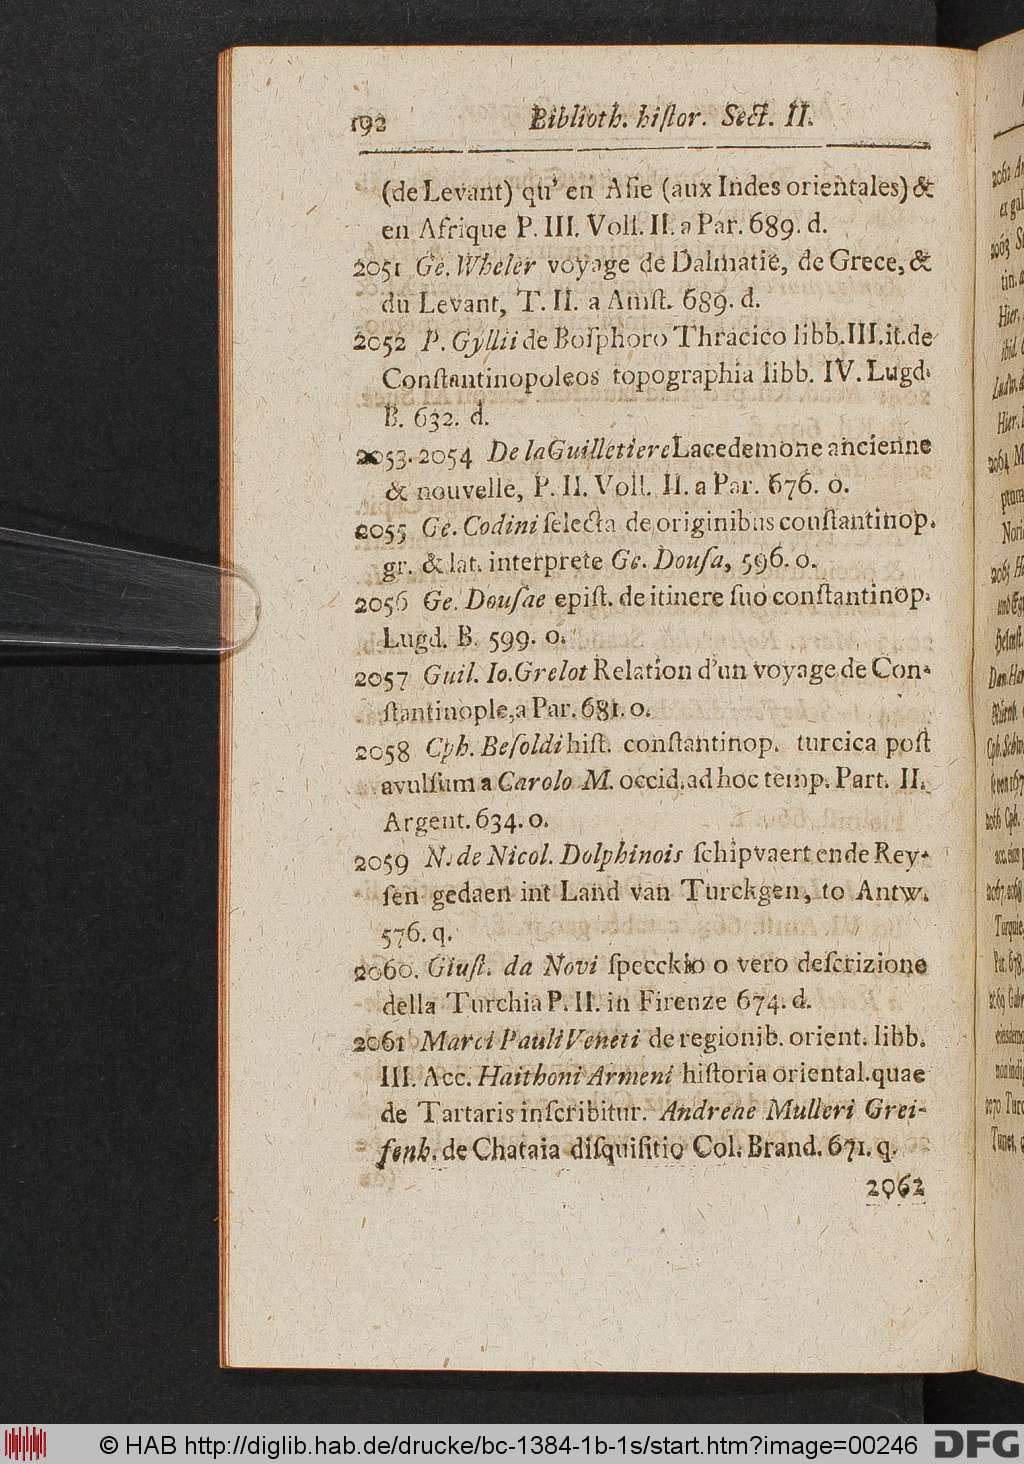 192 Biblioth. hiſtor. Sect. II.
(de Levant) qu' en Aſie (aux Indes orientales) &
en Afrique P. III. Voll. II. a Par. 689. d.
2051 Ge. Wheler voyage de Dalmatie, de Grece, &
du Levant, T. II. a Amſt. 689. d.
2052 P. Gyllii de Boſphoro Thracico libb. III. it. de
Conſtantinopoleos topographia libb. IV. Lugd.
B. 632. d.
2053. 2054 De la Guilletiere Lacedemone ancienne
& nouvelle, P. II. Voll. II. a Par. 676. o.
2055 Ge. Codini ſelecta de originibus conſtantinop.
gr. & lat. interprete Ge. Douſa, 596. o.
2056 Ge. Douſae epiſt. de itinere ſuo conſtantinop.
Lugd. B. 599. o.
2057 Guil. Io. Grelot Relation d'un voyage de Con-
ſtantinople, a Par. 681. o.
2058 Cph. Beſoldi hiſt. conſtantinop. turcica poſt
avulſum a Carolo M. occid. ad hoc temp. Part. II.
Argent. 634. o.
2059 N. de Nicol. Dolphinois ſchipvaert ende Rey-
ſen gedaen int Land van Turckgen, to Antw.
576. q.
2060. Giuſt. da Novi ſpecckio o vero deſcrizione
della Turchia P. II. in Firenze 674. d.
2061 Marci Pauli Veneti de regionib. orient. libb.
III. Acc. Haithoni Armeni hiſtoria oriental. quae
de Tartaris inſcribitur. Andreae Mulleri Grei-
fenh. de Chataia diſquiſitio Col. Brand. 671. q.
2062
© HAB http://diglib.hab.de/drucke/bc-1384-1b-1s/start.htm?image=00246 DFG